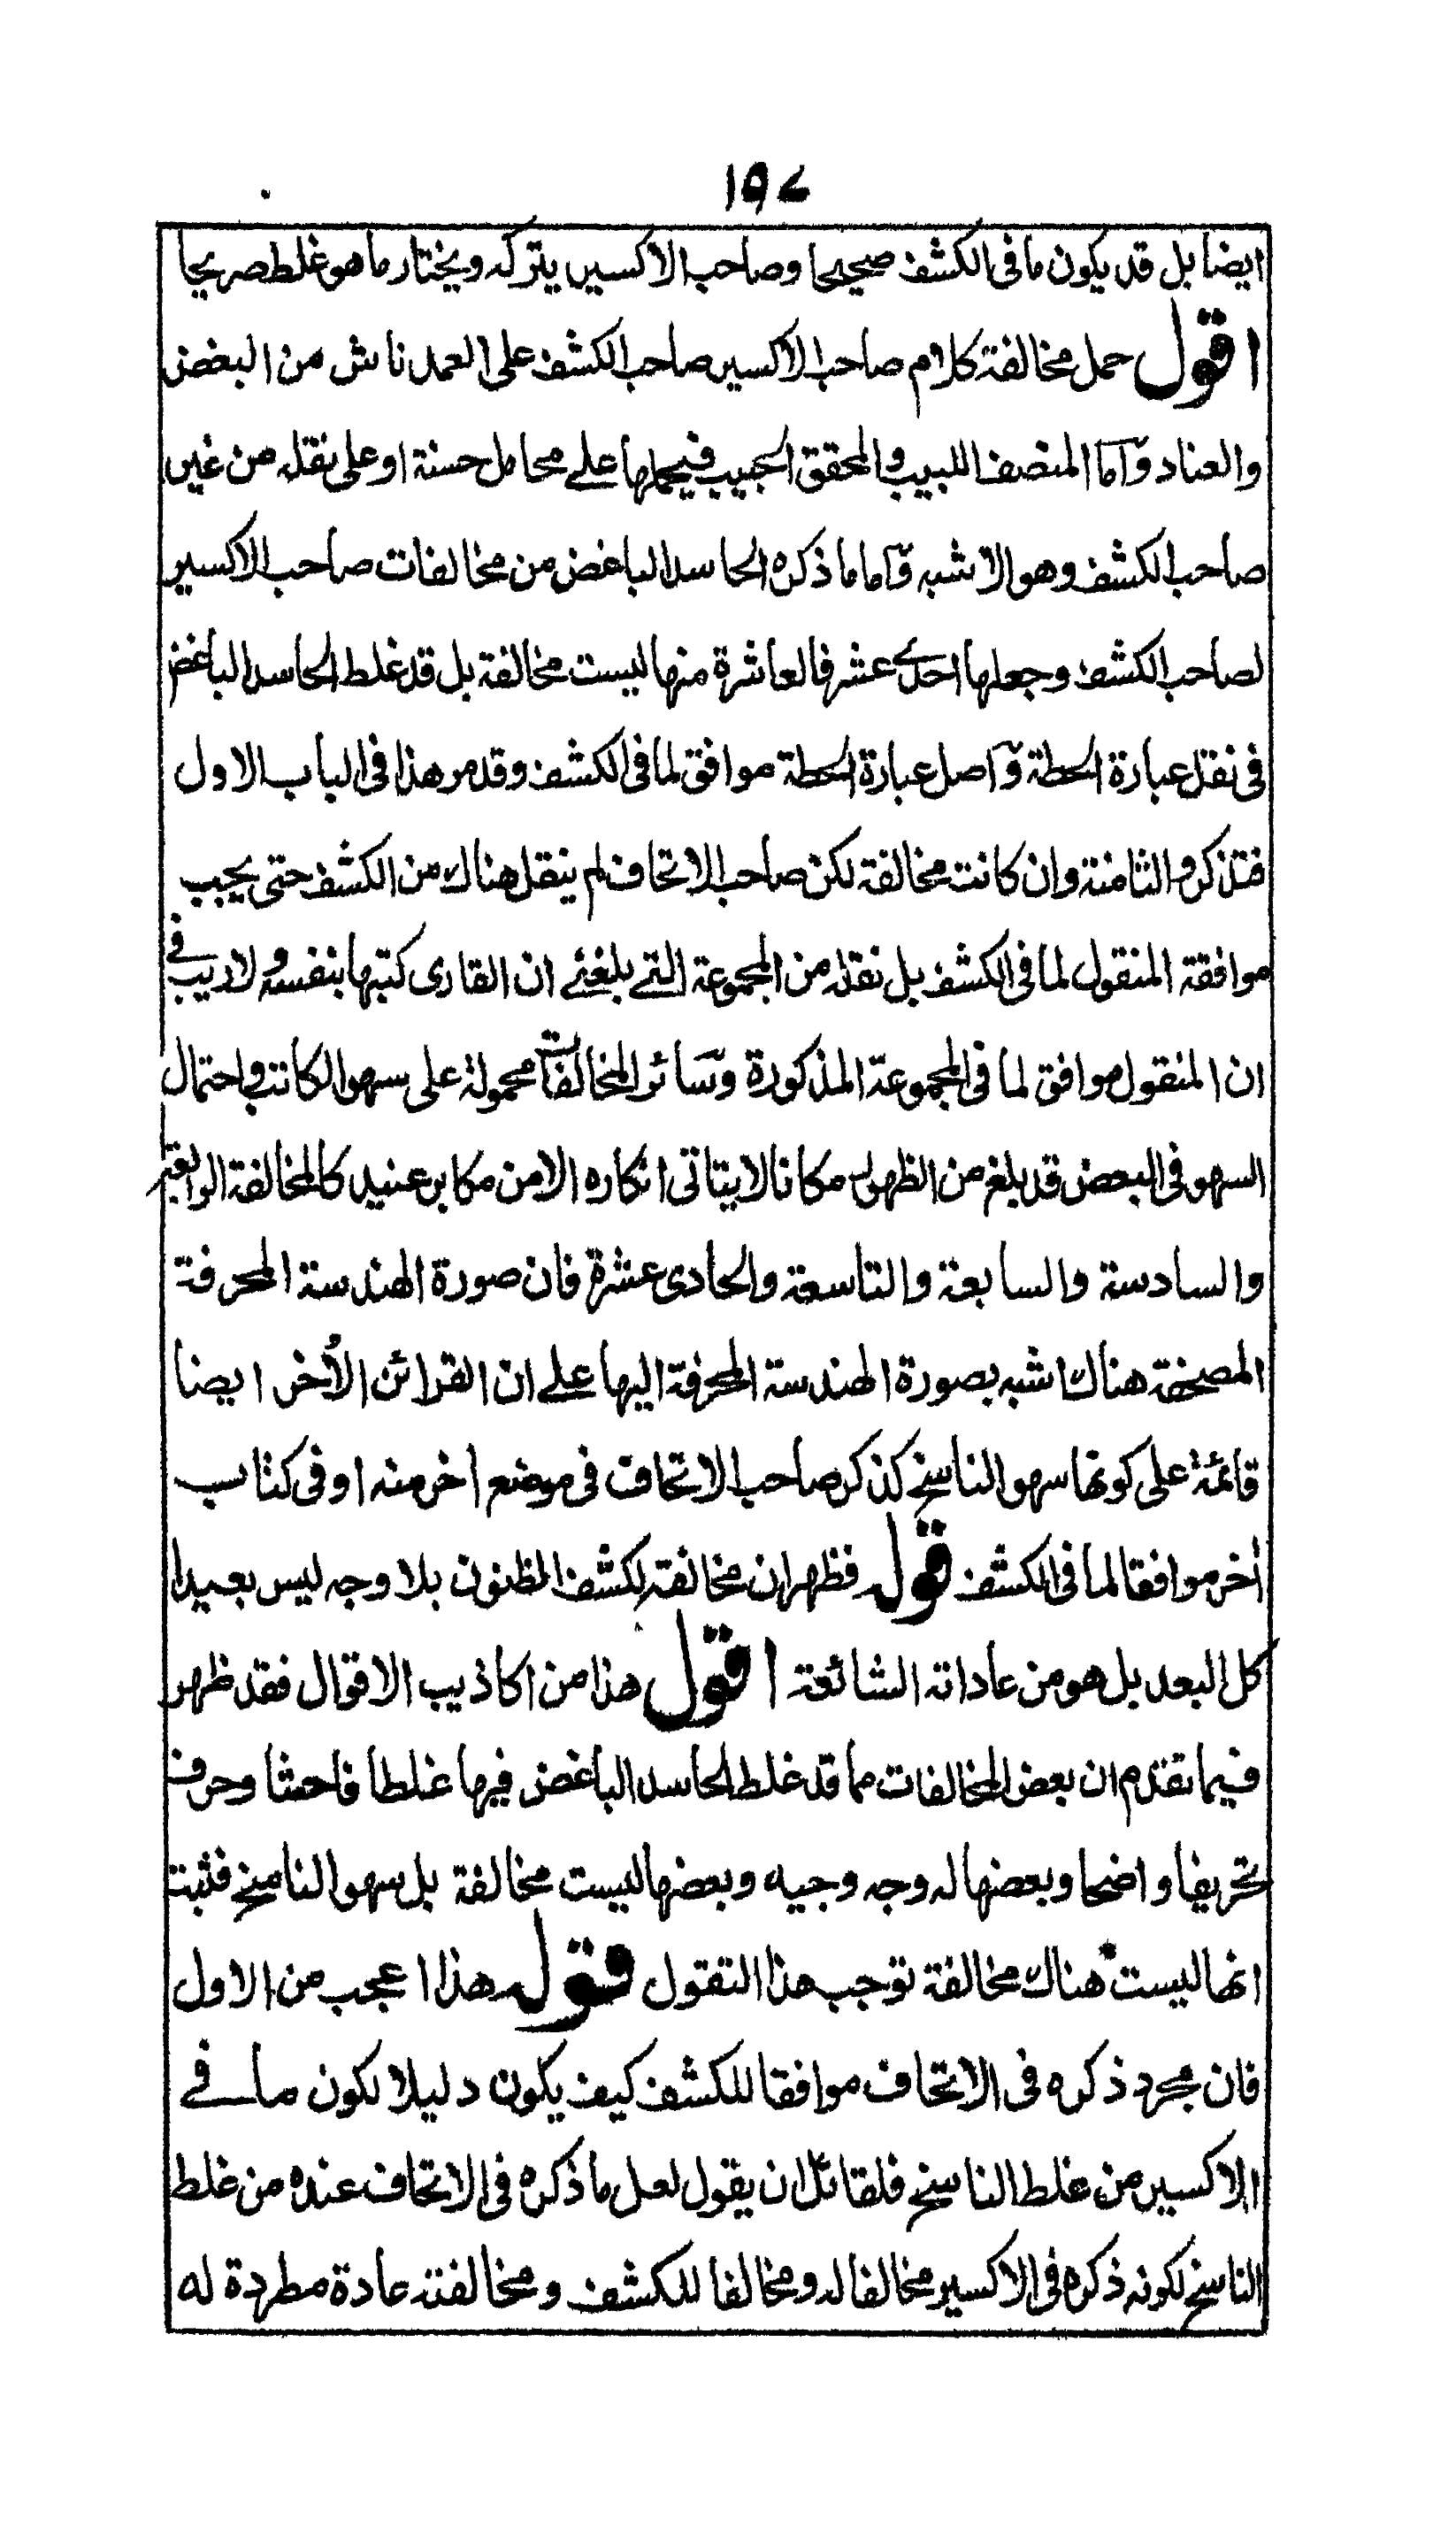 ١٩٧
ايضا بل قد يكون ما فى الكشف صحيحا وصاحب الاكسير يتركه ويختار ما هو غلط صريحا
اقول حمل مخالفة كلام صاحب الاكسير صاحب الكشف على العمد ناش من البغض
والعناد وآما المنصف اللبيب والمحقق الجيب فيحملها علے محامل حسنة او على نقله من غير
صاحب الكشف وهو الاشبه وآما ما ذكره الحاسد الباغض من مخالفات صاحب الاكسير
لصاحب الكشف وجعلها احدى عشر فالعاشرة منها ليست مخالفة بل قد غلط الحاسد الباغض
فى نقل عبارة الحطة وآصل عبارة الحطة موافق لما فى الكشف وقد مر هذا فى الباب الاول
فتذكر والثامنة وان كانت مخالفة لكن صاحب الاتحاف لم ينقل هناك من الكشف حتى يجيب
موافقة المنقول لما فى الكشف بل نقله من المجموعة التے بلغنے ان القارى كتبها بنفسه ولا ريب فے
ان المنقول موافق لما فى المجموعة المذكورة وسآئر المخالفات محمولة على سهو الكاتب واحتمال
السهو فى البعض قد بلغ من الظهور مكانا لا يتاتى انكاره الا من مكابر عنيد كالمخالفة الرابعة
والسادسة والسابعة والتاسعة والحادى عشرة فان صورة الهندسة المحرفة
المصحفة هناك اشبه بصورة الهندسة المحرفة اليها علے ان القرائن الاُخر ايضا
قائمة على كونها سهو الناسخ كذكر صاحب الاتحاف فى موضع اخر منه او فى كتاب
اٰخر موافقا لما فى الكشف قوله فظهر ان مخالفته لكشف الظنون بلا وجه ليس بعيدا
كل البعد بل هو من عاداته الشائعة اقول هذا من اكاذيب الاقوال فقد ظهر
فيما تقدم ان بعض المخالفات مما قد غلط الحاسد الباغض فيها غلطا فاحشا وحرف
تحريفا واضحا وبعضها له وجه وجيه وبعضها ليست مخالفة بل سهو الناسخ فثبت
انها ليست هناك مخالفة توجب هذا التقول قوله هذا اعجب من الاول
فان مجرد ذكره فى الاتحاف موافقا للكشف كيف يكون دليلا لكون ما فے
الاكسير من غلط الناسخ فلقائل ان يقول لعل ما ذكره فى الاتحاف عنده من غلط
الناسخ لكونه ذكره فى الاكسير مخالفا له ومخالفا للكشف ومخالفته عادة مطردة له